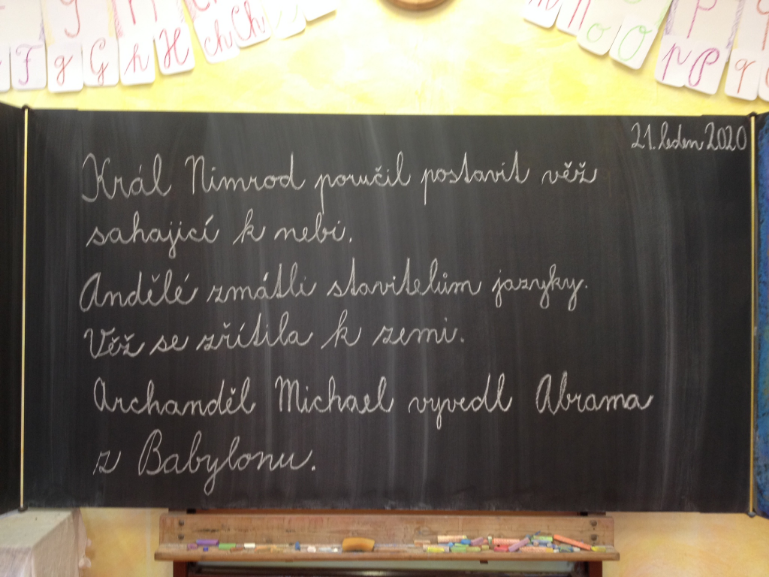 F g G h H ch Ch
o O p P q
21. leden 2020
Král Nimrod poručil postavit věž
sahající k nebi.
Andělé zmátli stavitelům jazyky.
Věž se zřítila k zemi.
Archanděl Michael vyvedl Abrama
z Babylonu.